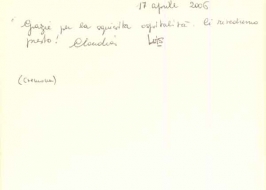 17 aprile 2006
"Grazie per la squisita ospitalità. Ci rivedremo
presto! Claudia
(Cremona)